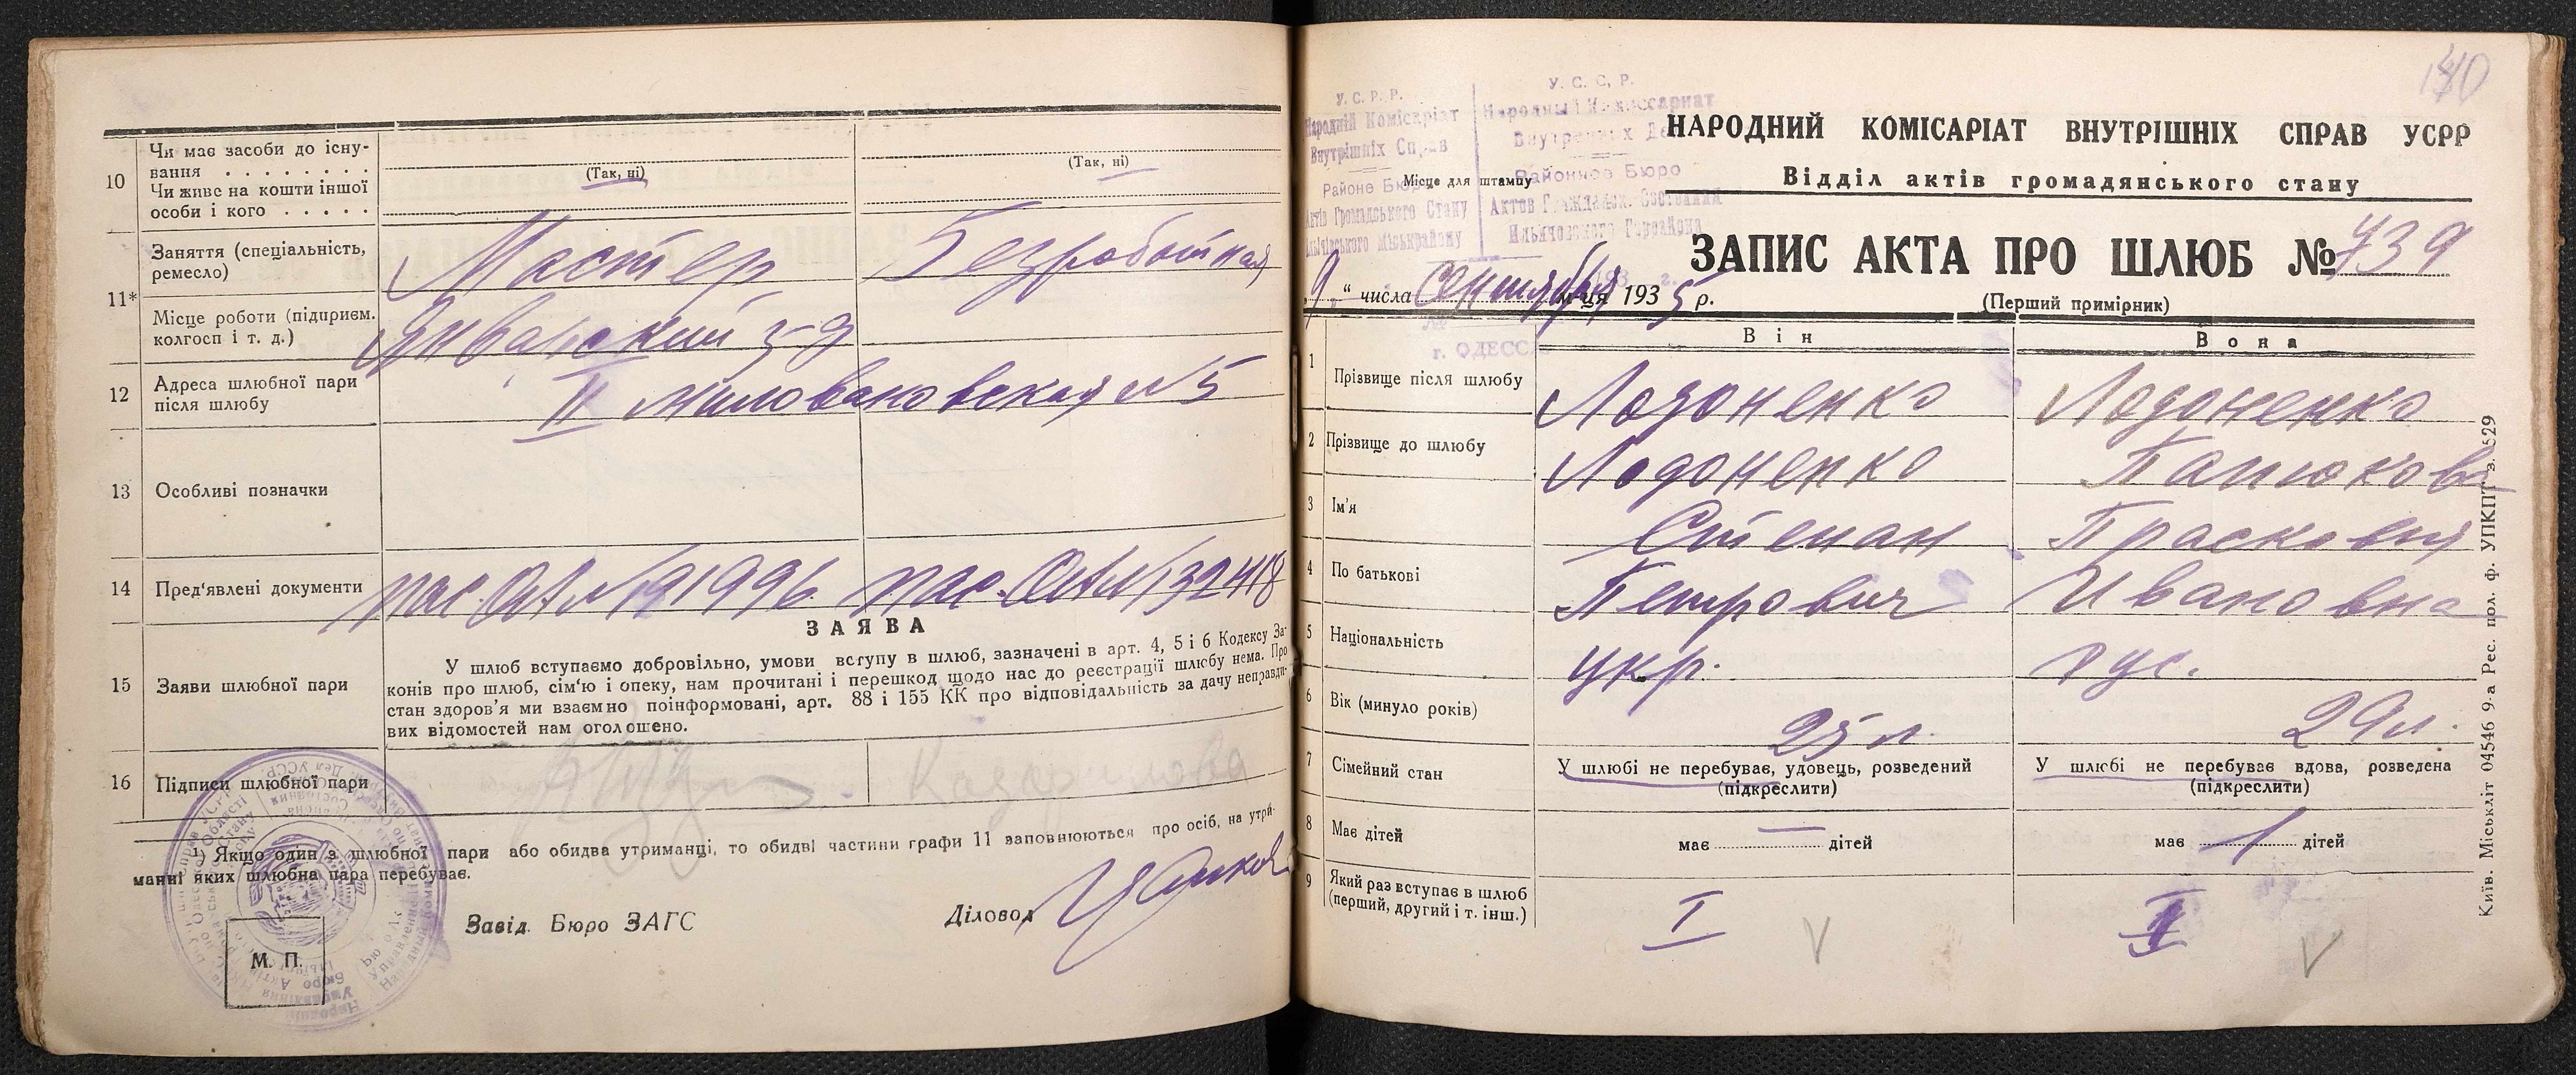 10
Чи має засоби до існу-
вання . . . . . . . .
Чи живе на кошти іншої
особи і кого . . . . .
(Так, ні)
(Так, ні)
11*
Заняття (спеціальність,
ремесло)
Мастер
Безработная
Місце роботи (підприєм.
колгосп і т. д.)
Январский з-д
12
Адреса шлюбної пари
після шлюбу
II Миловановская № 5
13
Особливі позначки
14
Пред'явлені документи
15
Заяви шлюбної пари
ЗАЯВА
У шлюб вступаємо добровільно, умови вступу в шлюб, зазначені в арт. 4, 5 і 6 Кодексу За-
конів про шлюб, сім'ю і опеку, нам прочитані і перешкод щодо нас до реєстрації шлюбу нема. Про
стан здоров'я ми взаємно поінформовані, арт. 88 і 155 КК про відповідальність за дачу неправди-
вих відомостей нам оголошено.
16
Підписи шлюбної пари
¹) Якщо один з шлюбної пари або обидва утриманці, то обидві частини графи 11 заповнюються про осіб, на утри-
манні яких шлюбна пара перебуває.
Завід. Бюро ЗАГС
Діловод
М. П.
У. С. Р. Р.
Народній Комісаріат
Внутрішніх Справ
У. С. С. Р.
Народный Комиссариат
Районное Бюро
Актов Гражданск. Состояния
Ильичевского Горрайона
г. ОДЕССА
Місце для штампу
НАРОДНИЙ КОМІСАРІАТ ВНУТРІШНІХ СПРАВ УСРР
Відділ актів громадянського стану
ЗАПИС АКТА ПРО ШЛЮБ № 739
„9“ числа Сентября м-ця 1935 р.
(Перший примірник)
Він
Вона
1
Прізвище після шлюбу
Лодоненко
Лодоненко
2
Прізвище до шлюбу
Лодоненко
Панюкова
3
Ім'я
Степан
Прасковья
4
По батькові
Петрович
Ивановна
5
Національність
укр.
рус.
6
Вік (минуло років)
25 л.
29 л.
7
Сімейний стан
У шлюбі не перебуває, удовець, розведений
(підкреслити)
У шлюбі не перебуває вдова, розведена
(підкреслити)
8
Має дітей
має — дітей
має 1 дітей
9
Який раз вступає в шлюб
(перший, другий і т. інш.)
I
Київ. Міськліт 04546 9-а Рес. пол. ф. УПКПТ з. 529